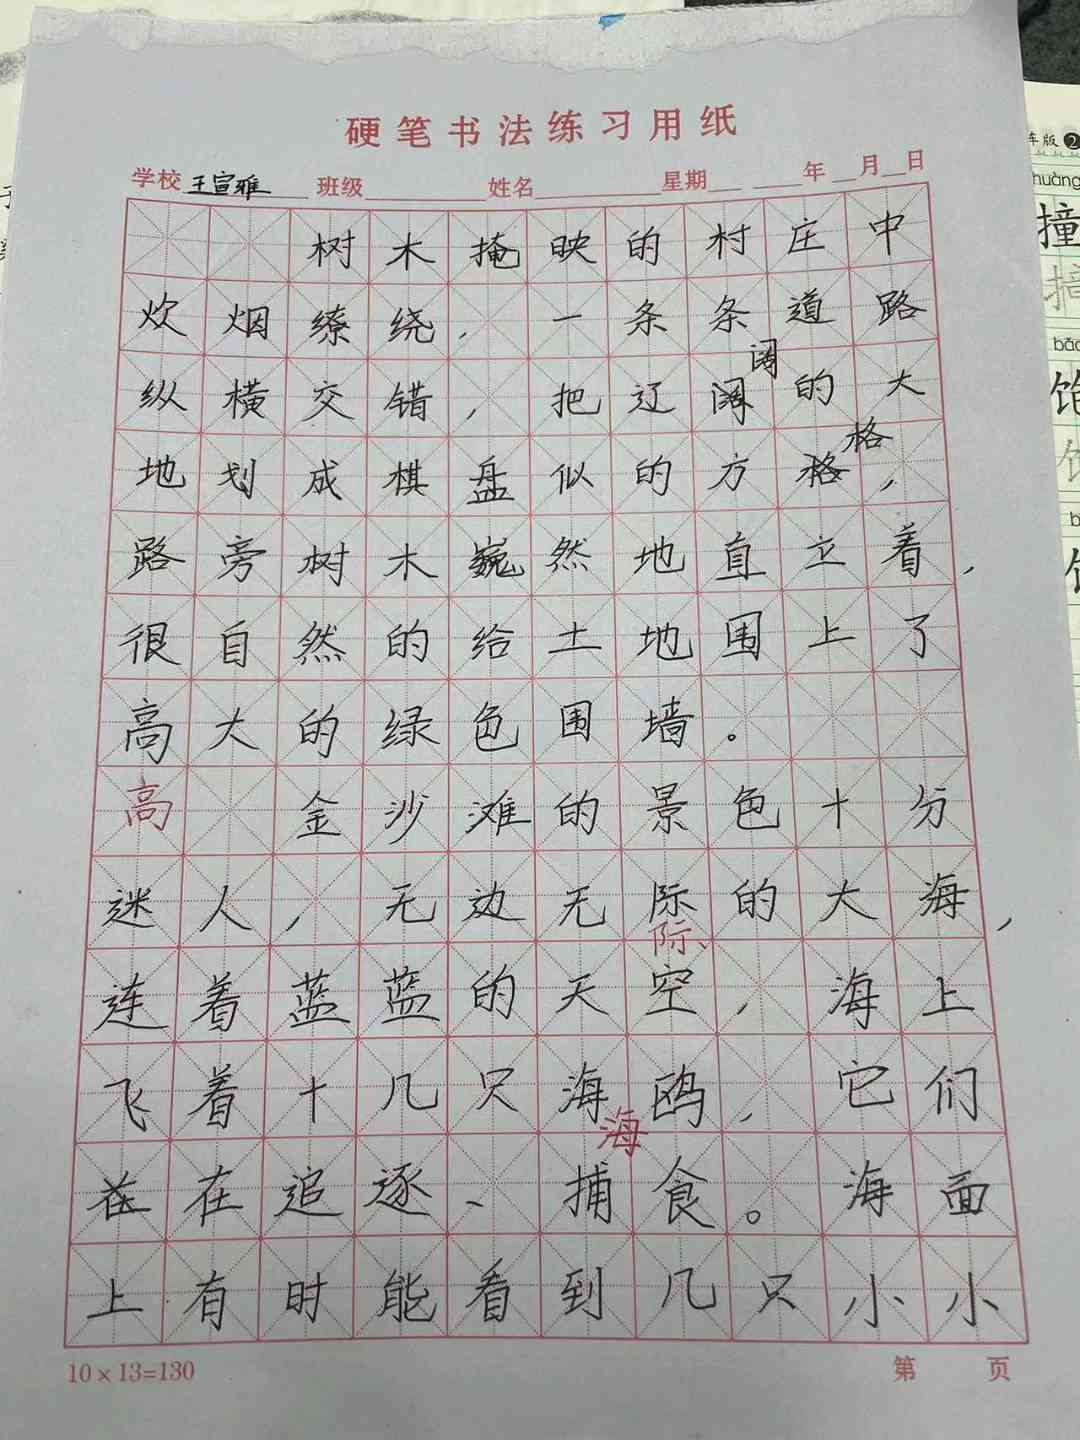 硬笔书法练习用纸
学校 王宣雅 班级 姓名 星期 年 月 日
树木掩映的村庄中
炊烟缭绕，一条条道路
阔
纵横交错，把辽阔的大
格
地划成棋盘似的方格，
路旁树木巍然地直立着，
很自然的给土地围上了
高大的绿色围墙。
高 金沙滩的景色十分
迷人，无边无际的大海，
际、
连着蓝蓝的天空，海上
飞着十几只海鸥，它们
海
在在追逐、捕食。海面
上有时能看到几只小小
10×13=130 第 页
年版 2
huàng
撞
撞